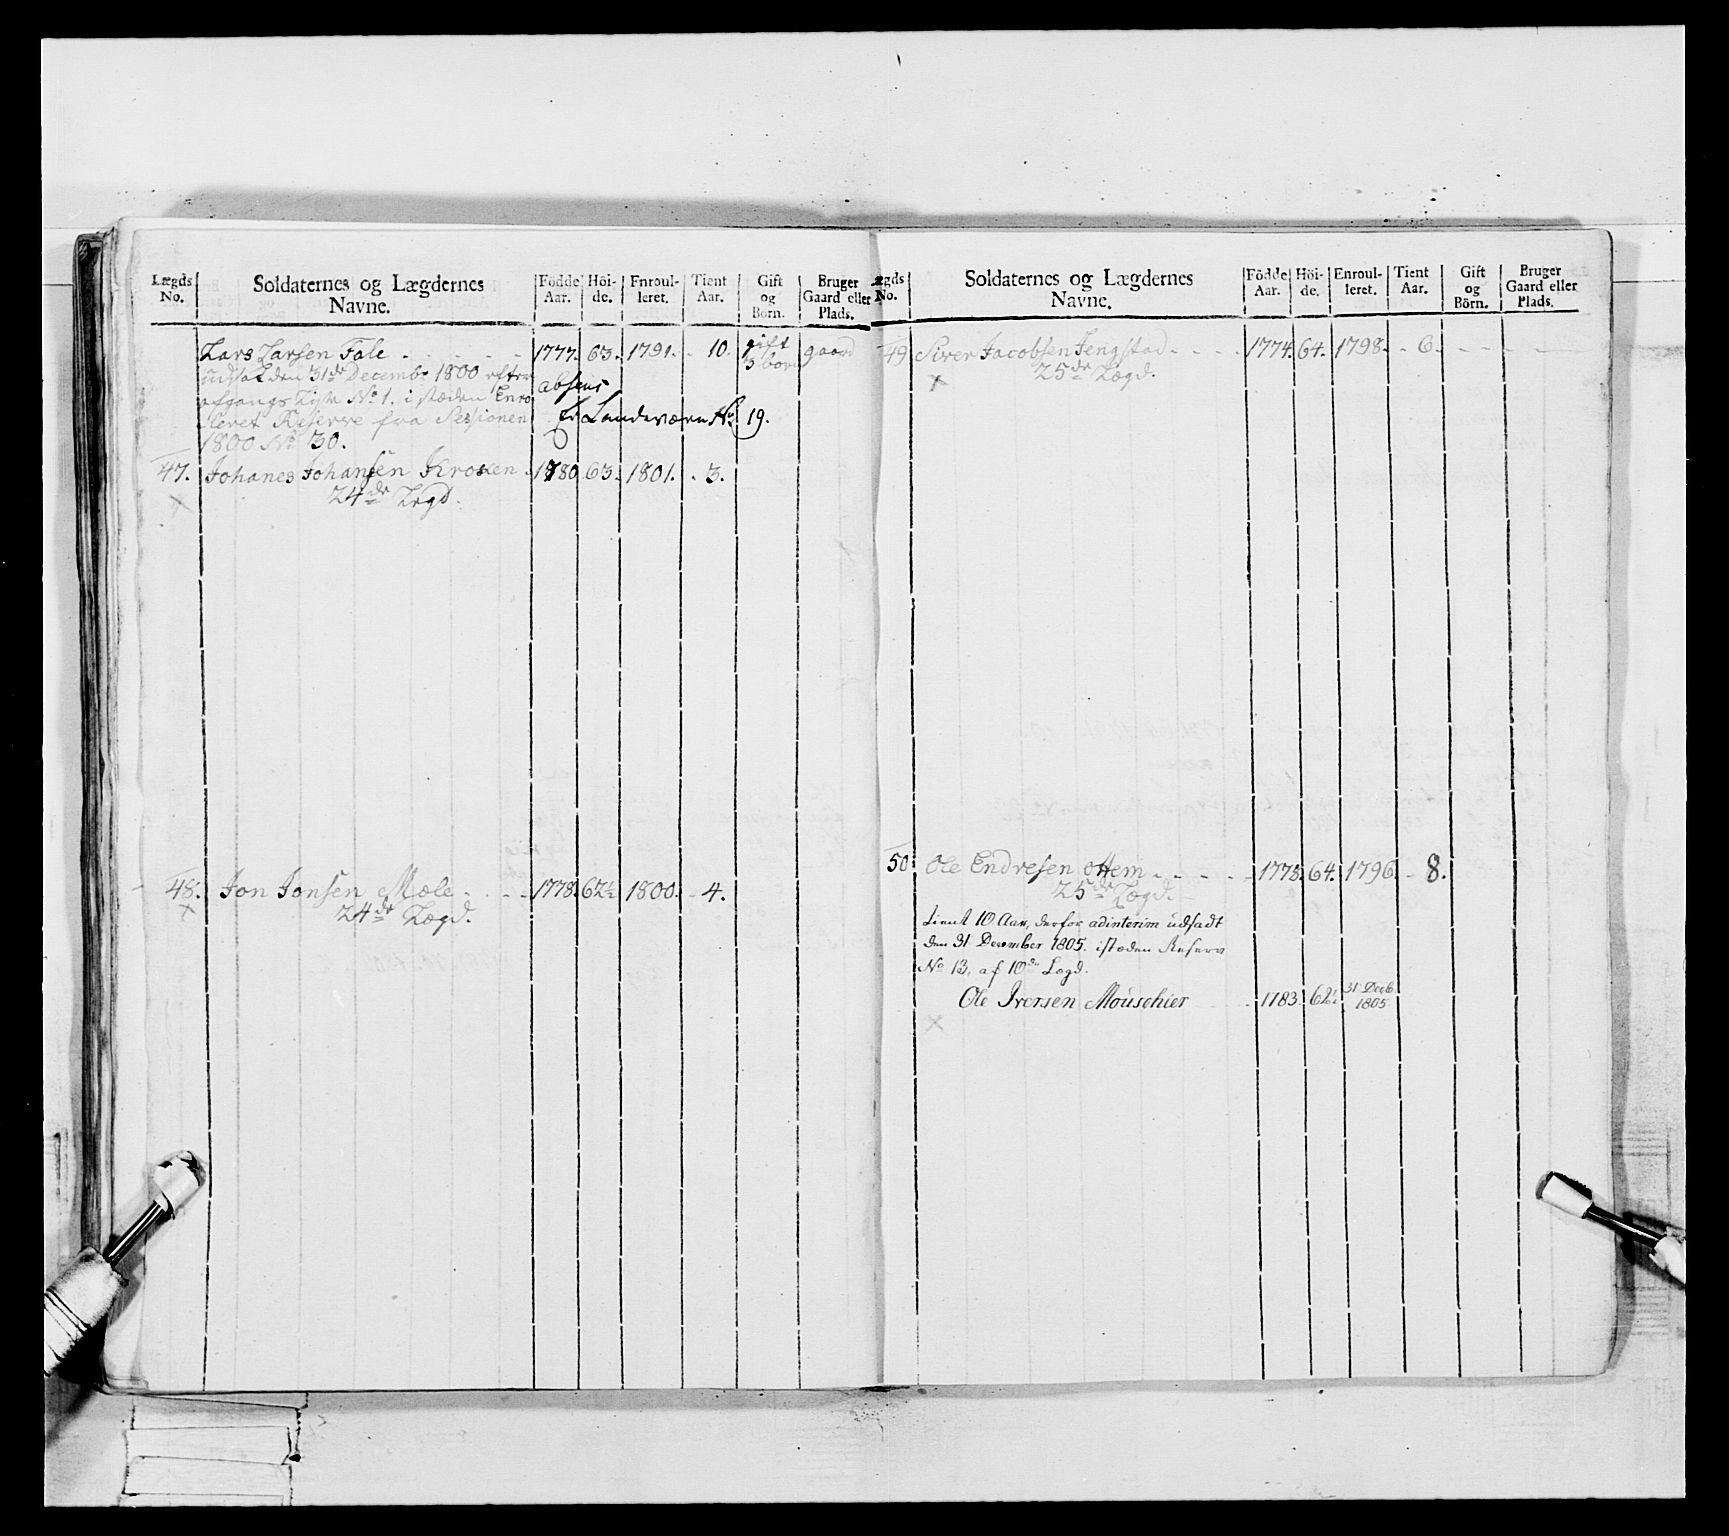 Lægds No. | Soldaternes og Lægdernes Navne. | Födde Aar. | Höi- de. | Enroul- leret. | Tient Aar. | Gift og Börn. | Bruger Gaard eller Plads.
Lars Larsen Fale - - - - - | 1777. | 63. | 1791. | 10. | gift 3 börn | gaard
udsat den 31de Decembr 1800 efter
afgangs Liste No 1. i stæden Enro
leret Reserve fra Sessionen
1800 No 30.
absens
Ed Landeværn No 19.
47. Johanes Johansen Kroken - | 1780 | 63. | 1801. | 3.
24de Lægd.
48. Jon Jonsen Mæle - - - | 1778. | 62½ | 1800. | 4.
24de Lægd.
Lægds No. | Soldaternes og Lægdernes Navne. | Födde Aar. | Höi- de. | Enroul- leret. | Tient Aar. | Gift og Börn. | Bruger Gaard eller Plads.
49 Siver Jacobsen Jengstad - - - - | 1774. | 64. | 1798. | 6.
25de Lægd.
50. Ole Endresen Ottem - - - - | 1778. | 64. | 1796. | 8.
25de Lægd.
tient 10 Aar, derfor adinterim udsadt
den 31 December 1805. istæden Reserv
No 13, af 10de Lægd.
Ole Iversen Mouschier | 1783. | 62½ | 31 Decb. 1805